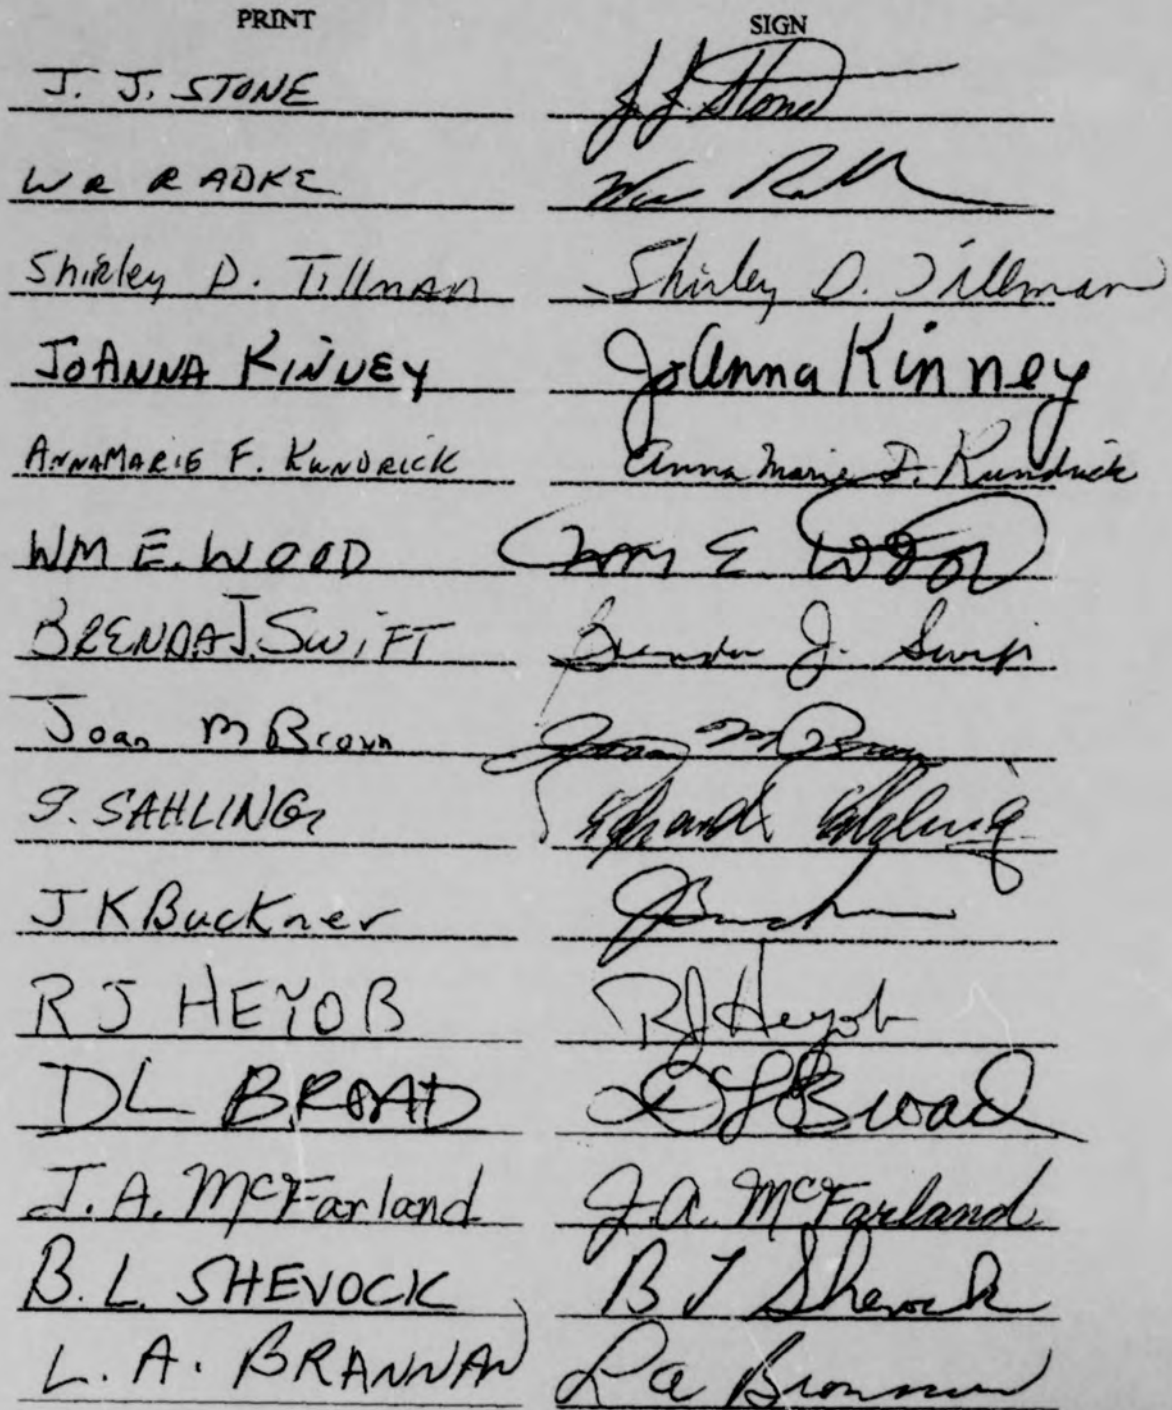 PRINT SIGN
J. J. STONE J J Stone
WR RADKE
Shirley D. Tillman Shirley D. Tillman
JOANNA KINNEY JoAnna Kinney
ANNAMARIE F. KUNDRICK Anna Marie F. Kundrick
WM E. WOOD Wm E Wood
BRENDA J. SWIFT Brenda J. Swift
Joan M Brown Joan M Brown
S. SAHLING Sahling
J K Buckner J
R J HEYOB RJ Heyob
DL BROAD DL Broad
J. A. McFarland J. A. McFarland
B. L. SHEVOCK B L Shevock
L. A. BRANNAN L a Brannan